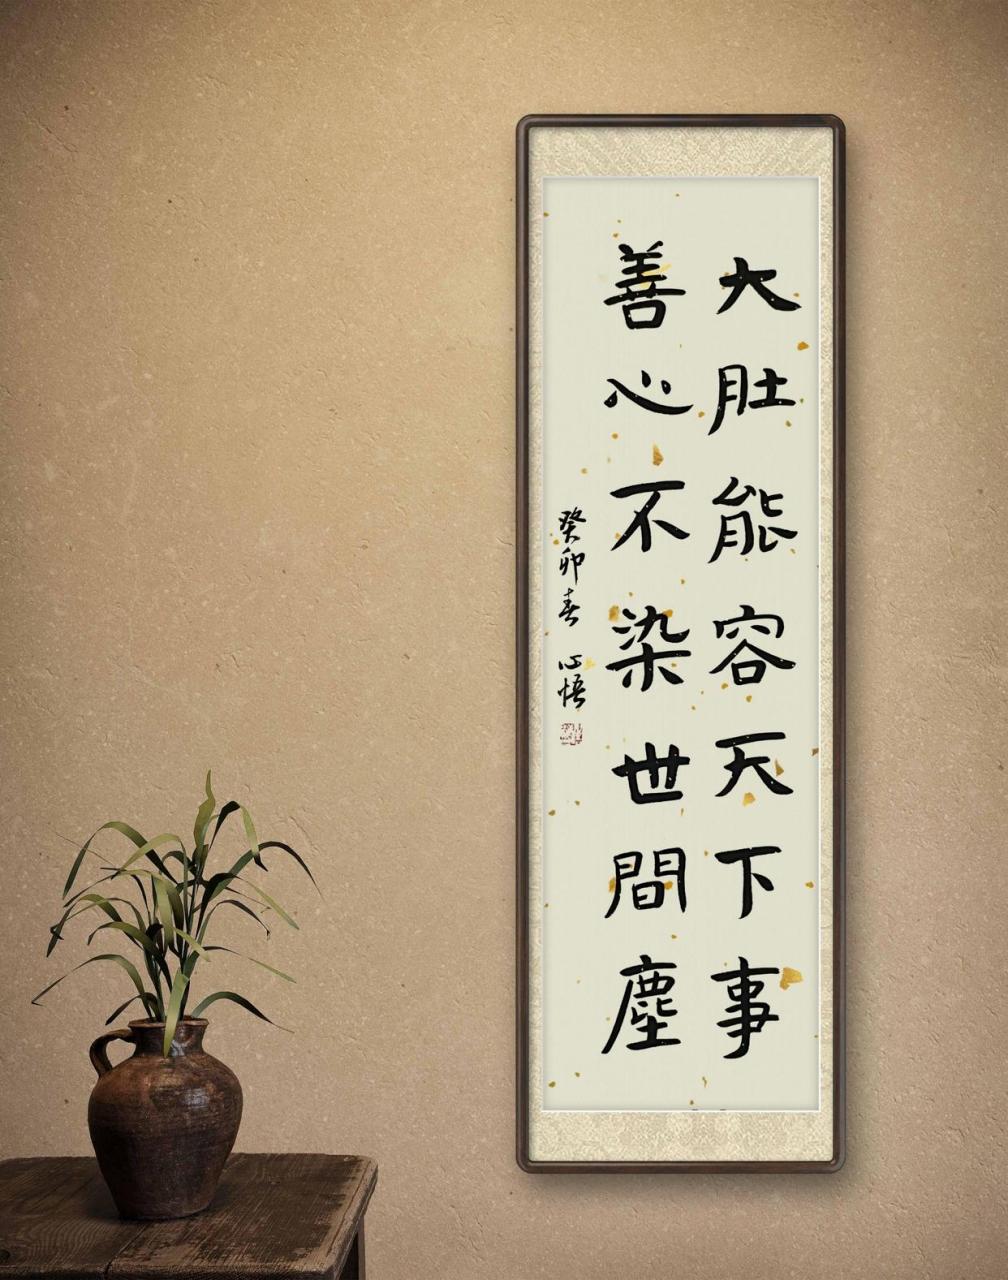 大肚能容天下事
善心不染世間塵
癸卯春 心悟